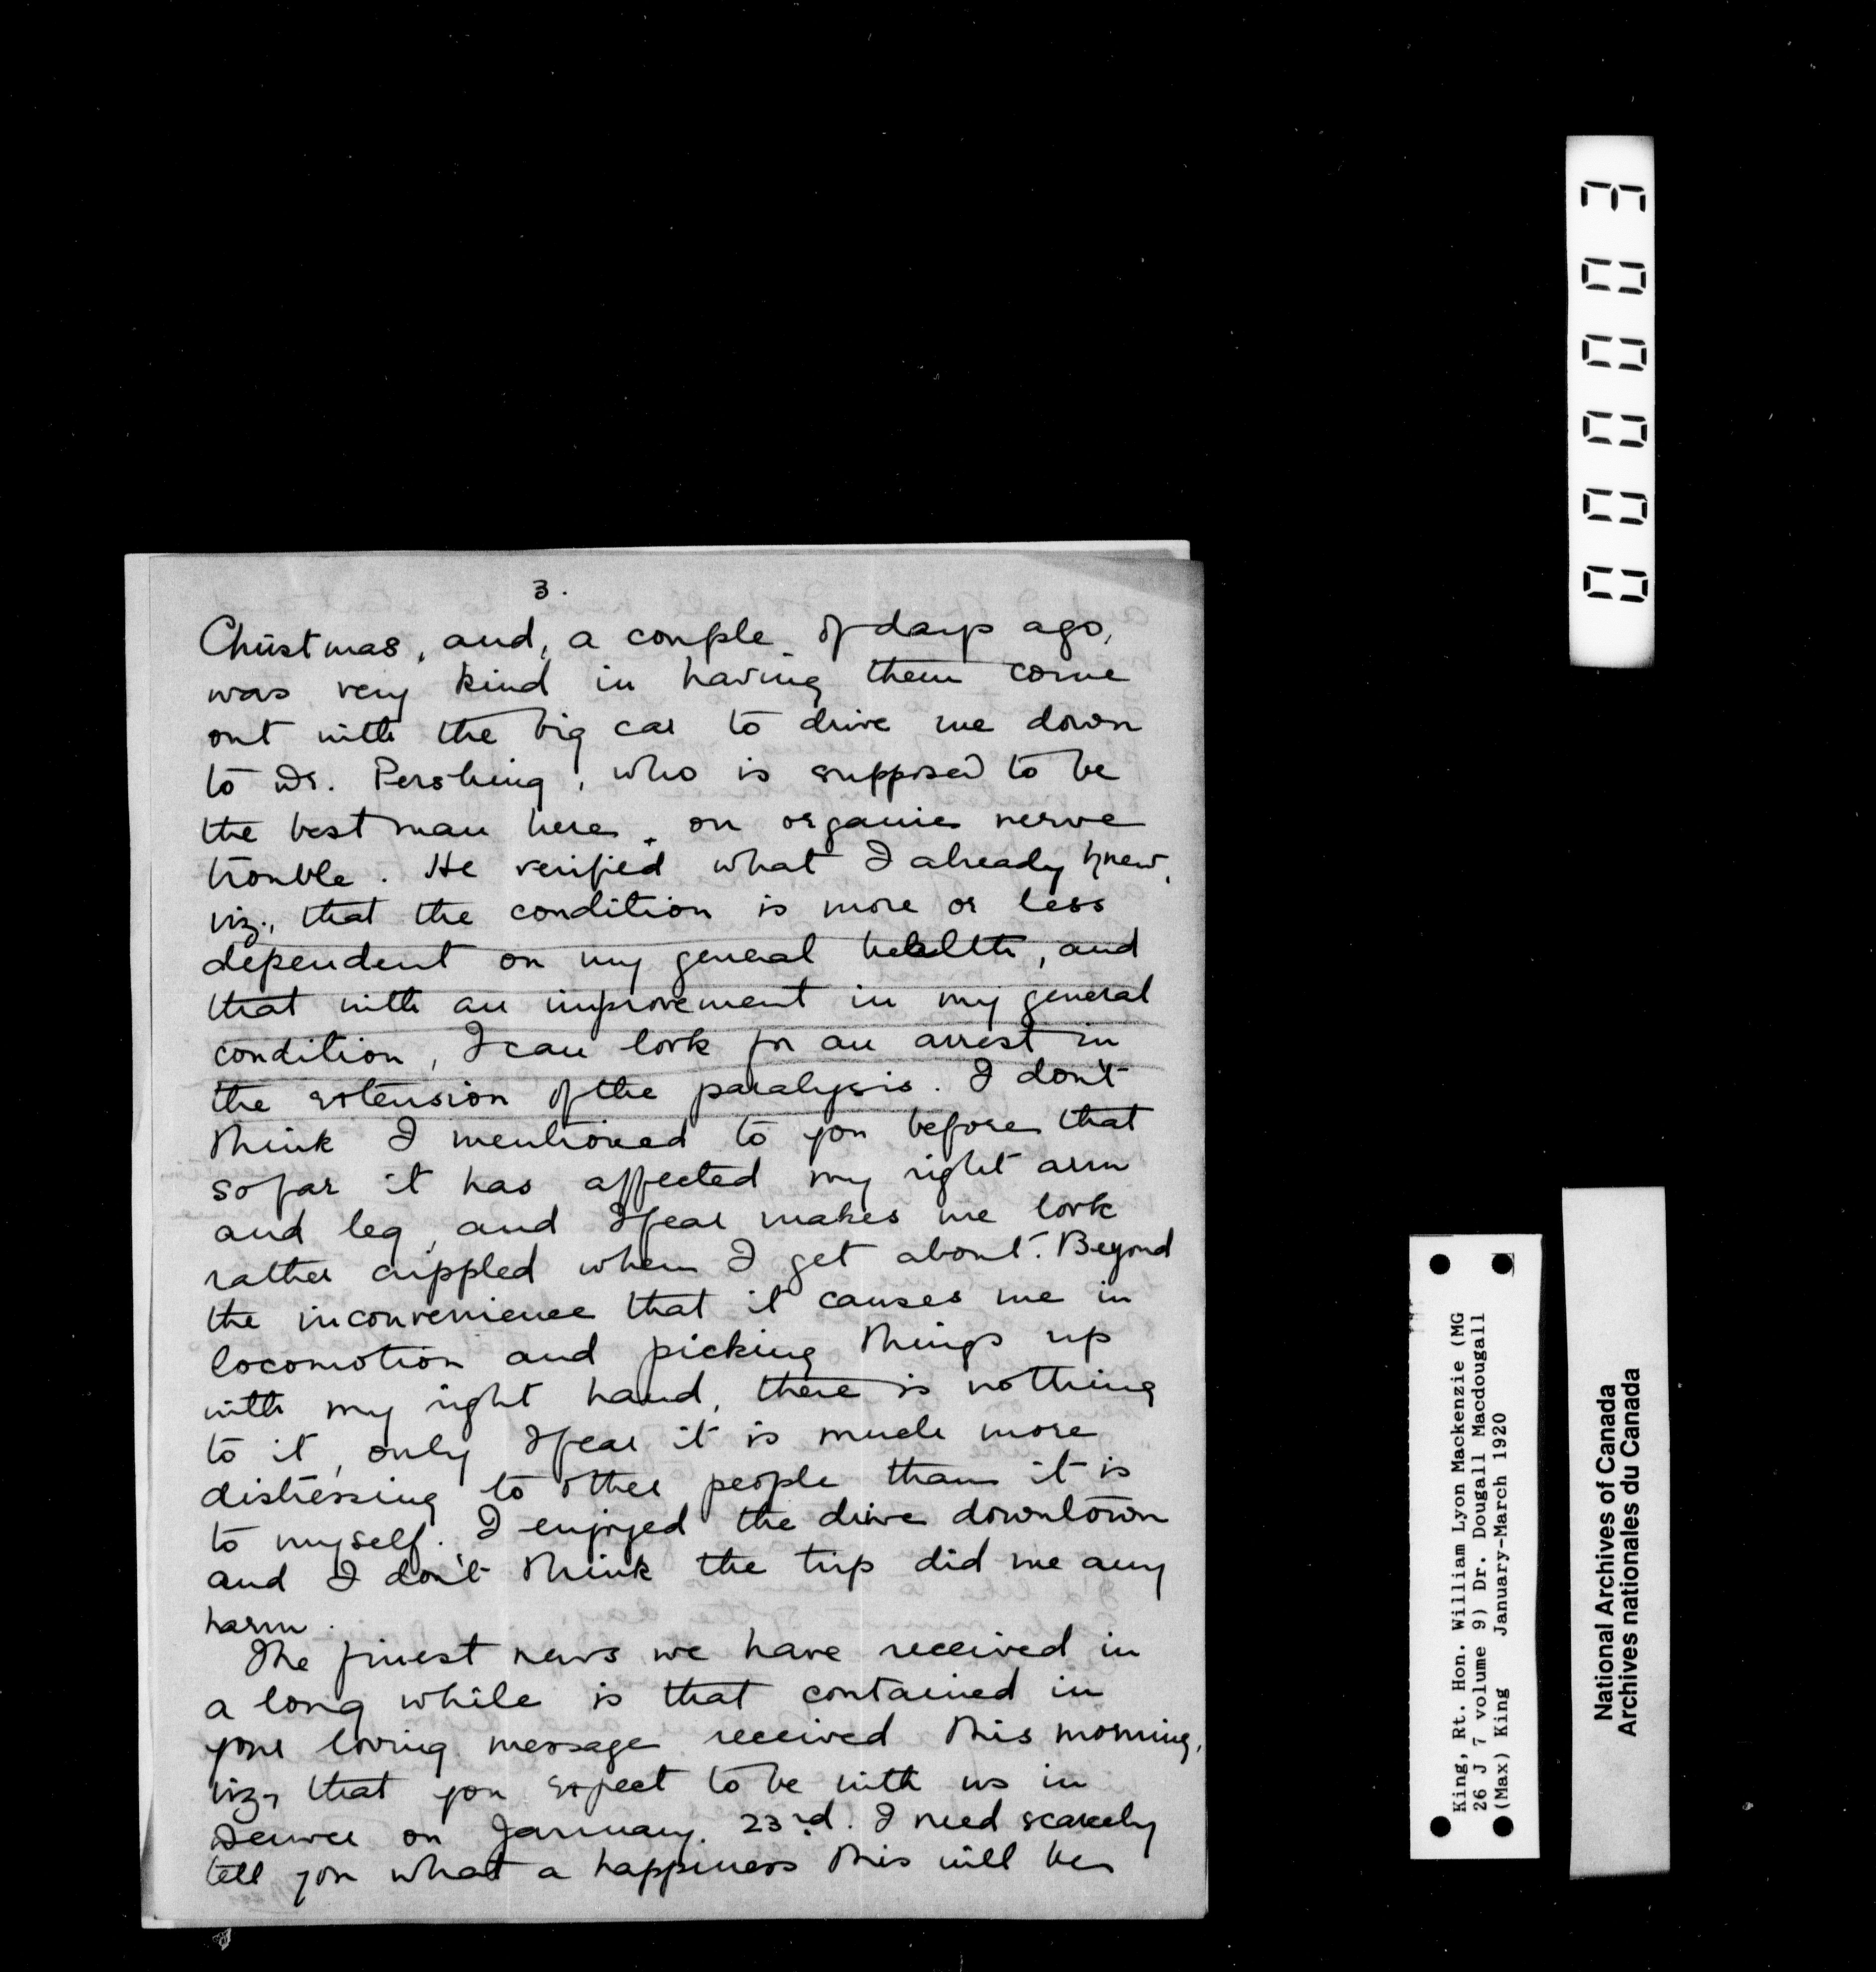 3.
Christmas, and, a couple of days ago,
was very kind in having them come
out with the big car to drive me down
to Dr. Pershing, who is supposed to be
the best man here, on organic nerve
trouble. He verified what I already knew,
viz., that the condition is more or less
dependent on my general health, and
that with an improvement in my general
condition, I can look for an arrest in
the extension of the paralysis. I don't
think I mentioned to you before that
so far it has affected my right arm
and leg, and I fear makes me look
rather crippled when I get about. Beyond
the inconvenience that it causes me in
locomotion and picking things up
with my right hand, there is nothing
to it, only I fear it is much more
distressing to other people than it is
to myself. I enjoyed the drive downtown
and I don't think the trip did me any
harm.
The finest news we have received in
a long while is that contained in
your loving message received this morning,
viz, that you expect to be with us in
Denver on January. 23rd. I need scarcely
tell you what a happiness this will be
000003
King, Rt. Hon. William Lyon Mackenzie (MG
26 J 7 volume 9) Dr. Dougall Macdougall
(Max) King January-March 1920
National Archives of Canada
Archives nationales du Canada